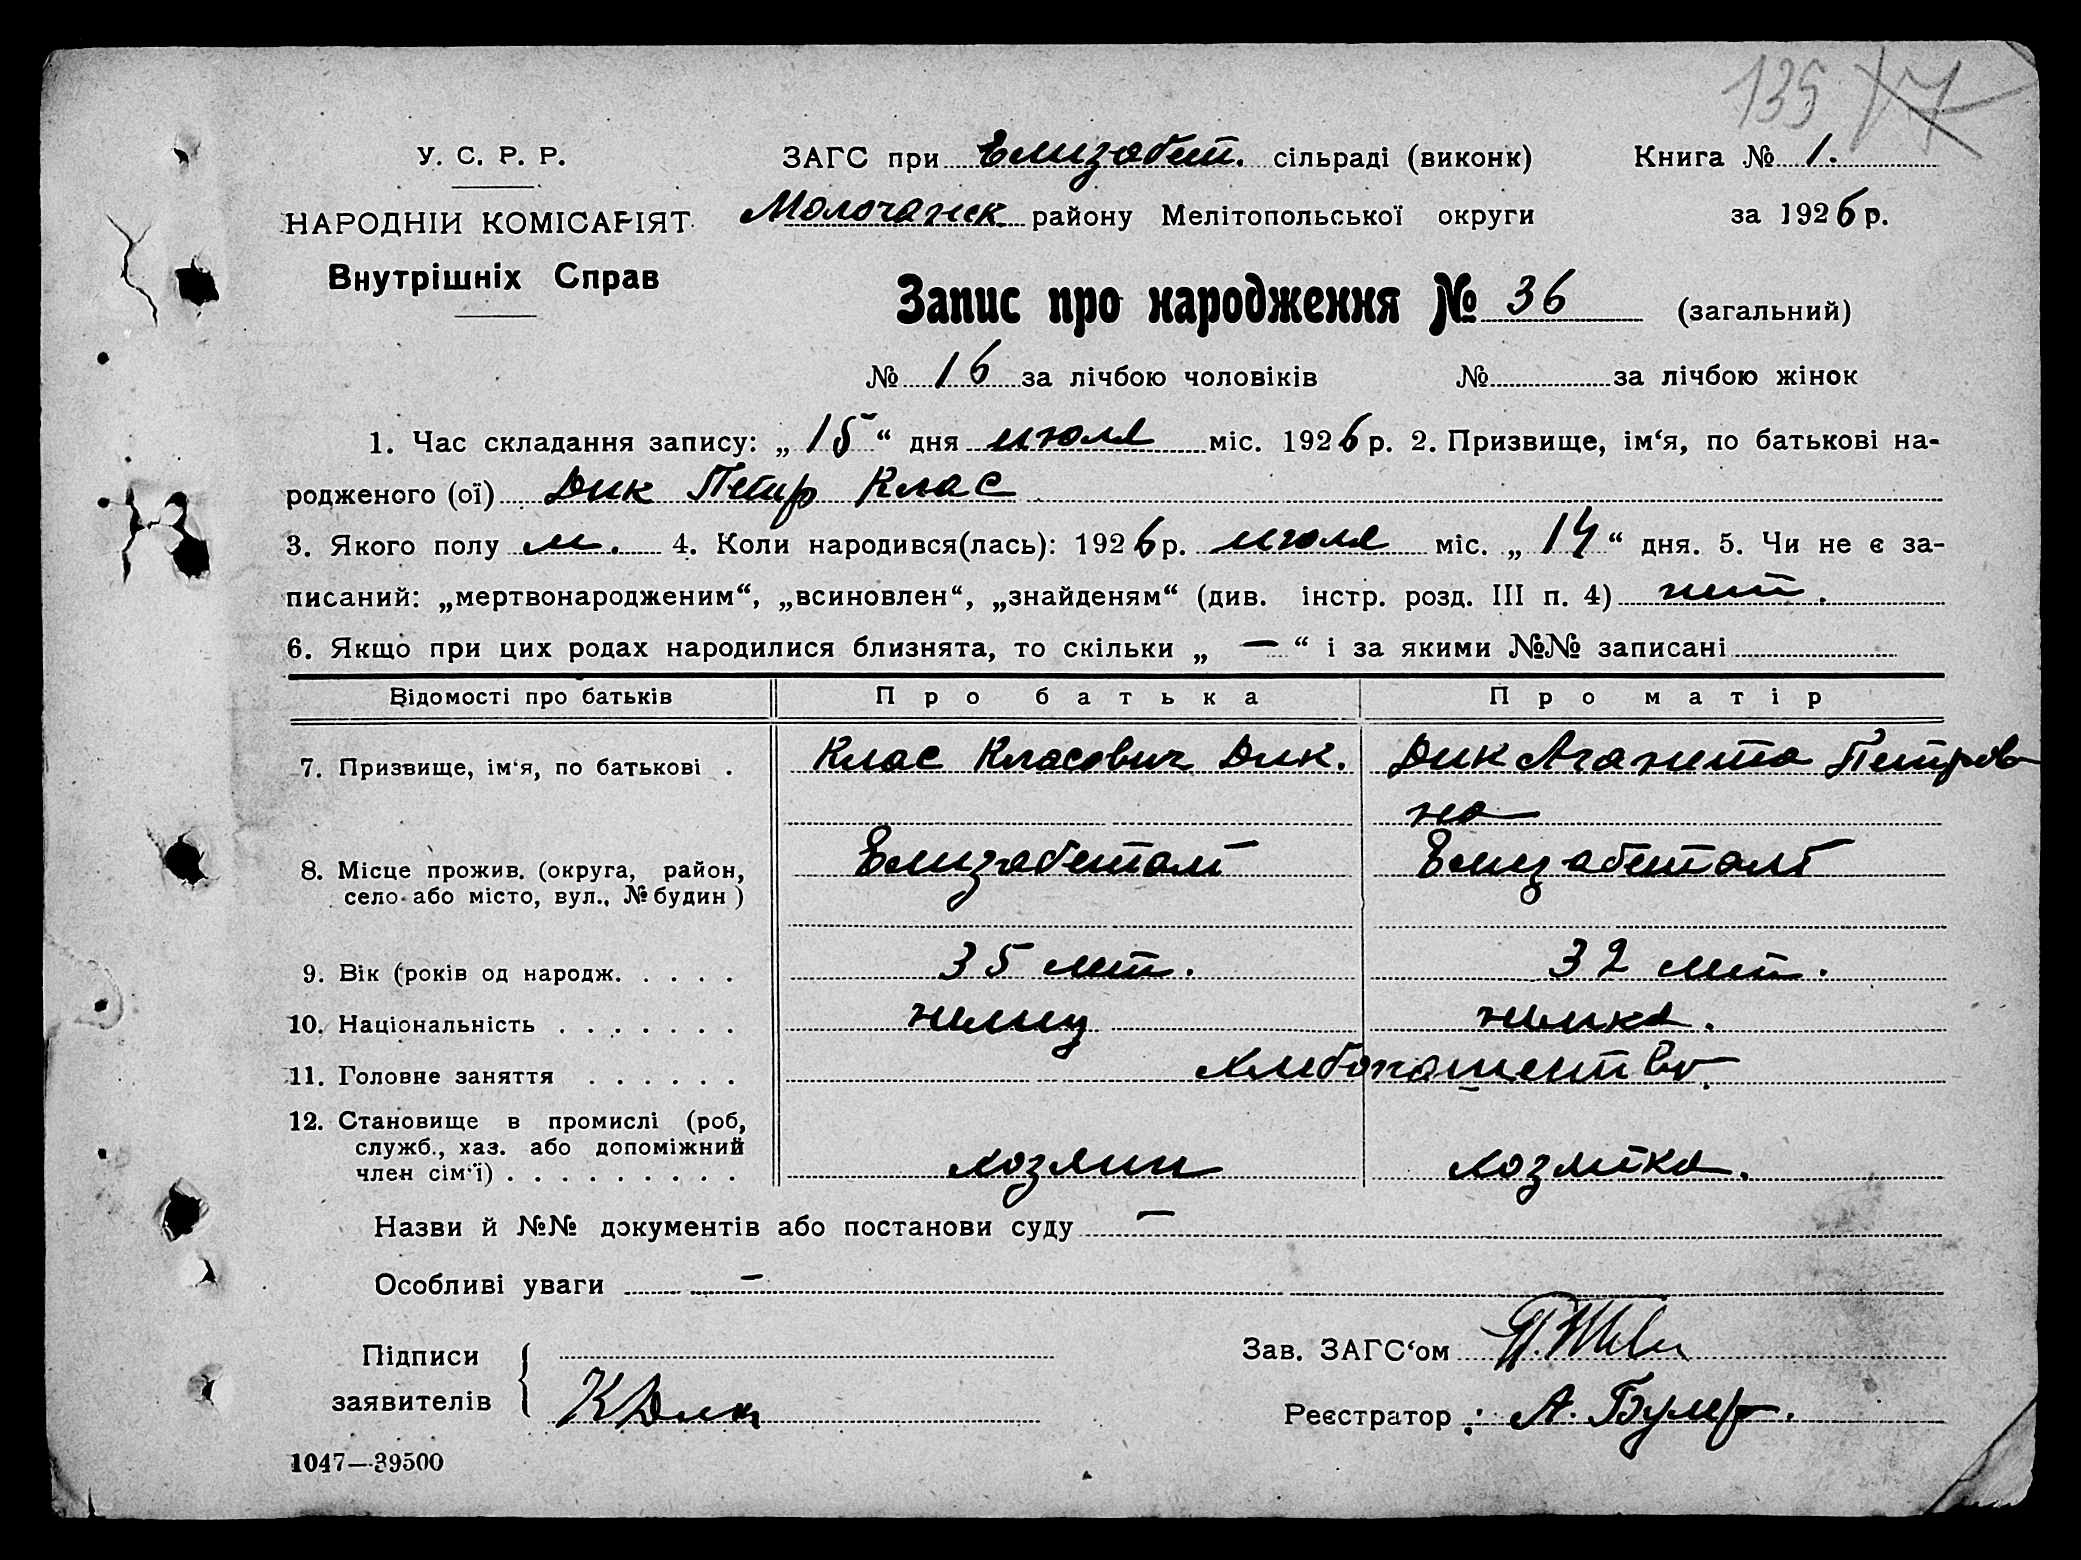 135 17
У. С. Р. Р.
ЗАГС при Елизабет. сільраді (виконк)
Книга № 1.
НАРОДНІЙ КОМІСАРІЯТ
Молочанск району Мелітопольської округи
за 1926 р.
Внутрішніх Справ
Запис про народження № 36 (загальний)
№ 16 за лічбою чоловіків № за лічбою жінок
1. Час складання запису: „ 15 “ дня июля міс. 1926 р. 2. Призвище, ім‘я, по батькові на-
родженого (ої) Дик Петр Клас
3. Якого полу м. 4. Коли народився(лась): 1926 р. июля міс. „ 14 “ дня. 5. Чи не є за-
писаний: „мертвонародженим“, „всиновлен“, „знайденям“ (див. інстр. розд. III п. 4) нет.
6. Якщо при цих родах народилися близнята, то скільки „ — “ і за якими №№ записані
Відомості про батьків Про батька Про матір
7. Призвище, ім‘я, по батькові . Клас Класович Дик. Дик Аганита Петров
на
8. Місце прожив. (округа, район, Елизабетталь Елизабетталь
село або місто, вул., № будин )
9. Вік (років од народж. . . . . 35 лет. 32 лет.
10. Національність . . . . . . . немец немка.
11. Головне заняття . . . . . . хлебопашество.
12. Становище в промислі (роб,
служб., хаз. або допоміжний
член сім‘ї) . . . . . . . . . хозяин хозяйка.
Назви й №№ документів або постанови суду —
Особливі уваги —
Підписи
Зав. ЗАГС‘ом
заявителів К Дик
Реєстратор А. Булер.
1047—39500